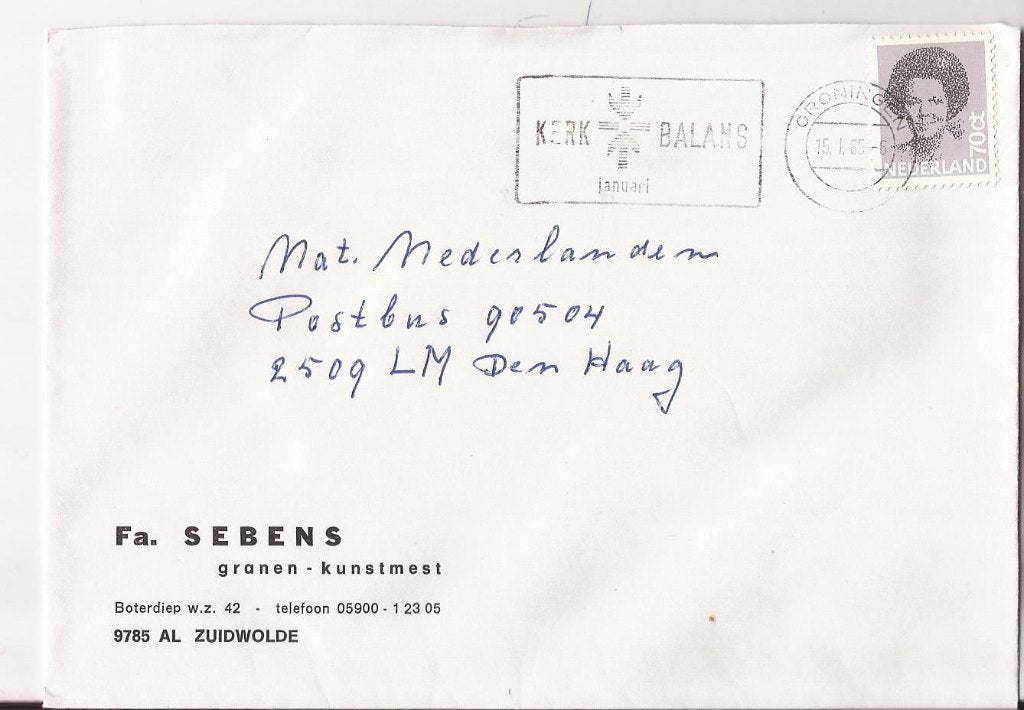 KERK BALANS
januari
GRONINGEN
15. I. 85
70ct
NEDERLAND
Nat. Nederlanden
Postbus 90504
2509 LM Den Haag
Fa. SEBENS
granen - kunstmest
Boterdiep w.z. 42 - telefoon 05900 - 1 23 05
9785 AL ZUIDWOLDE